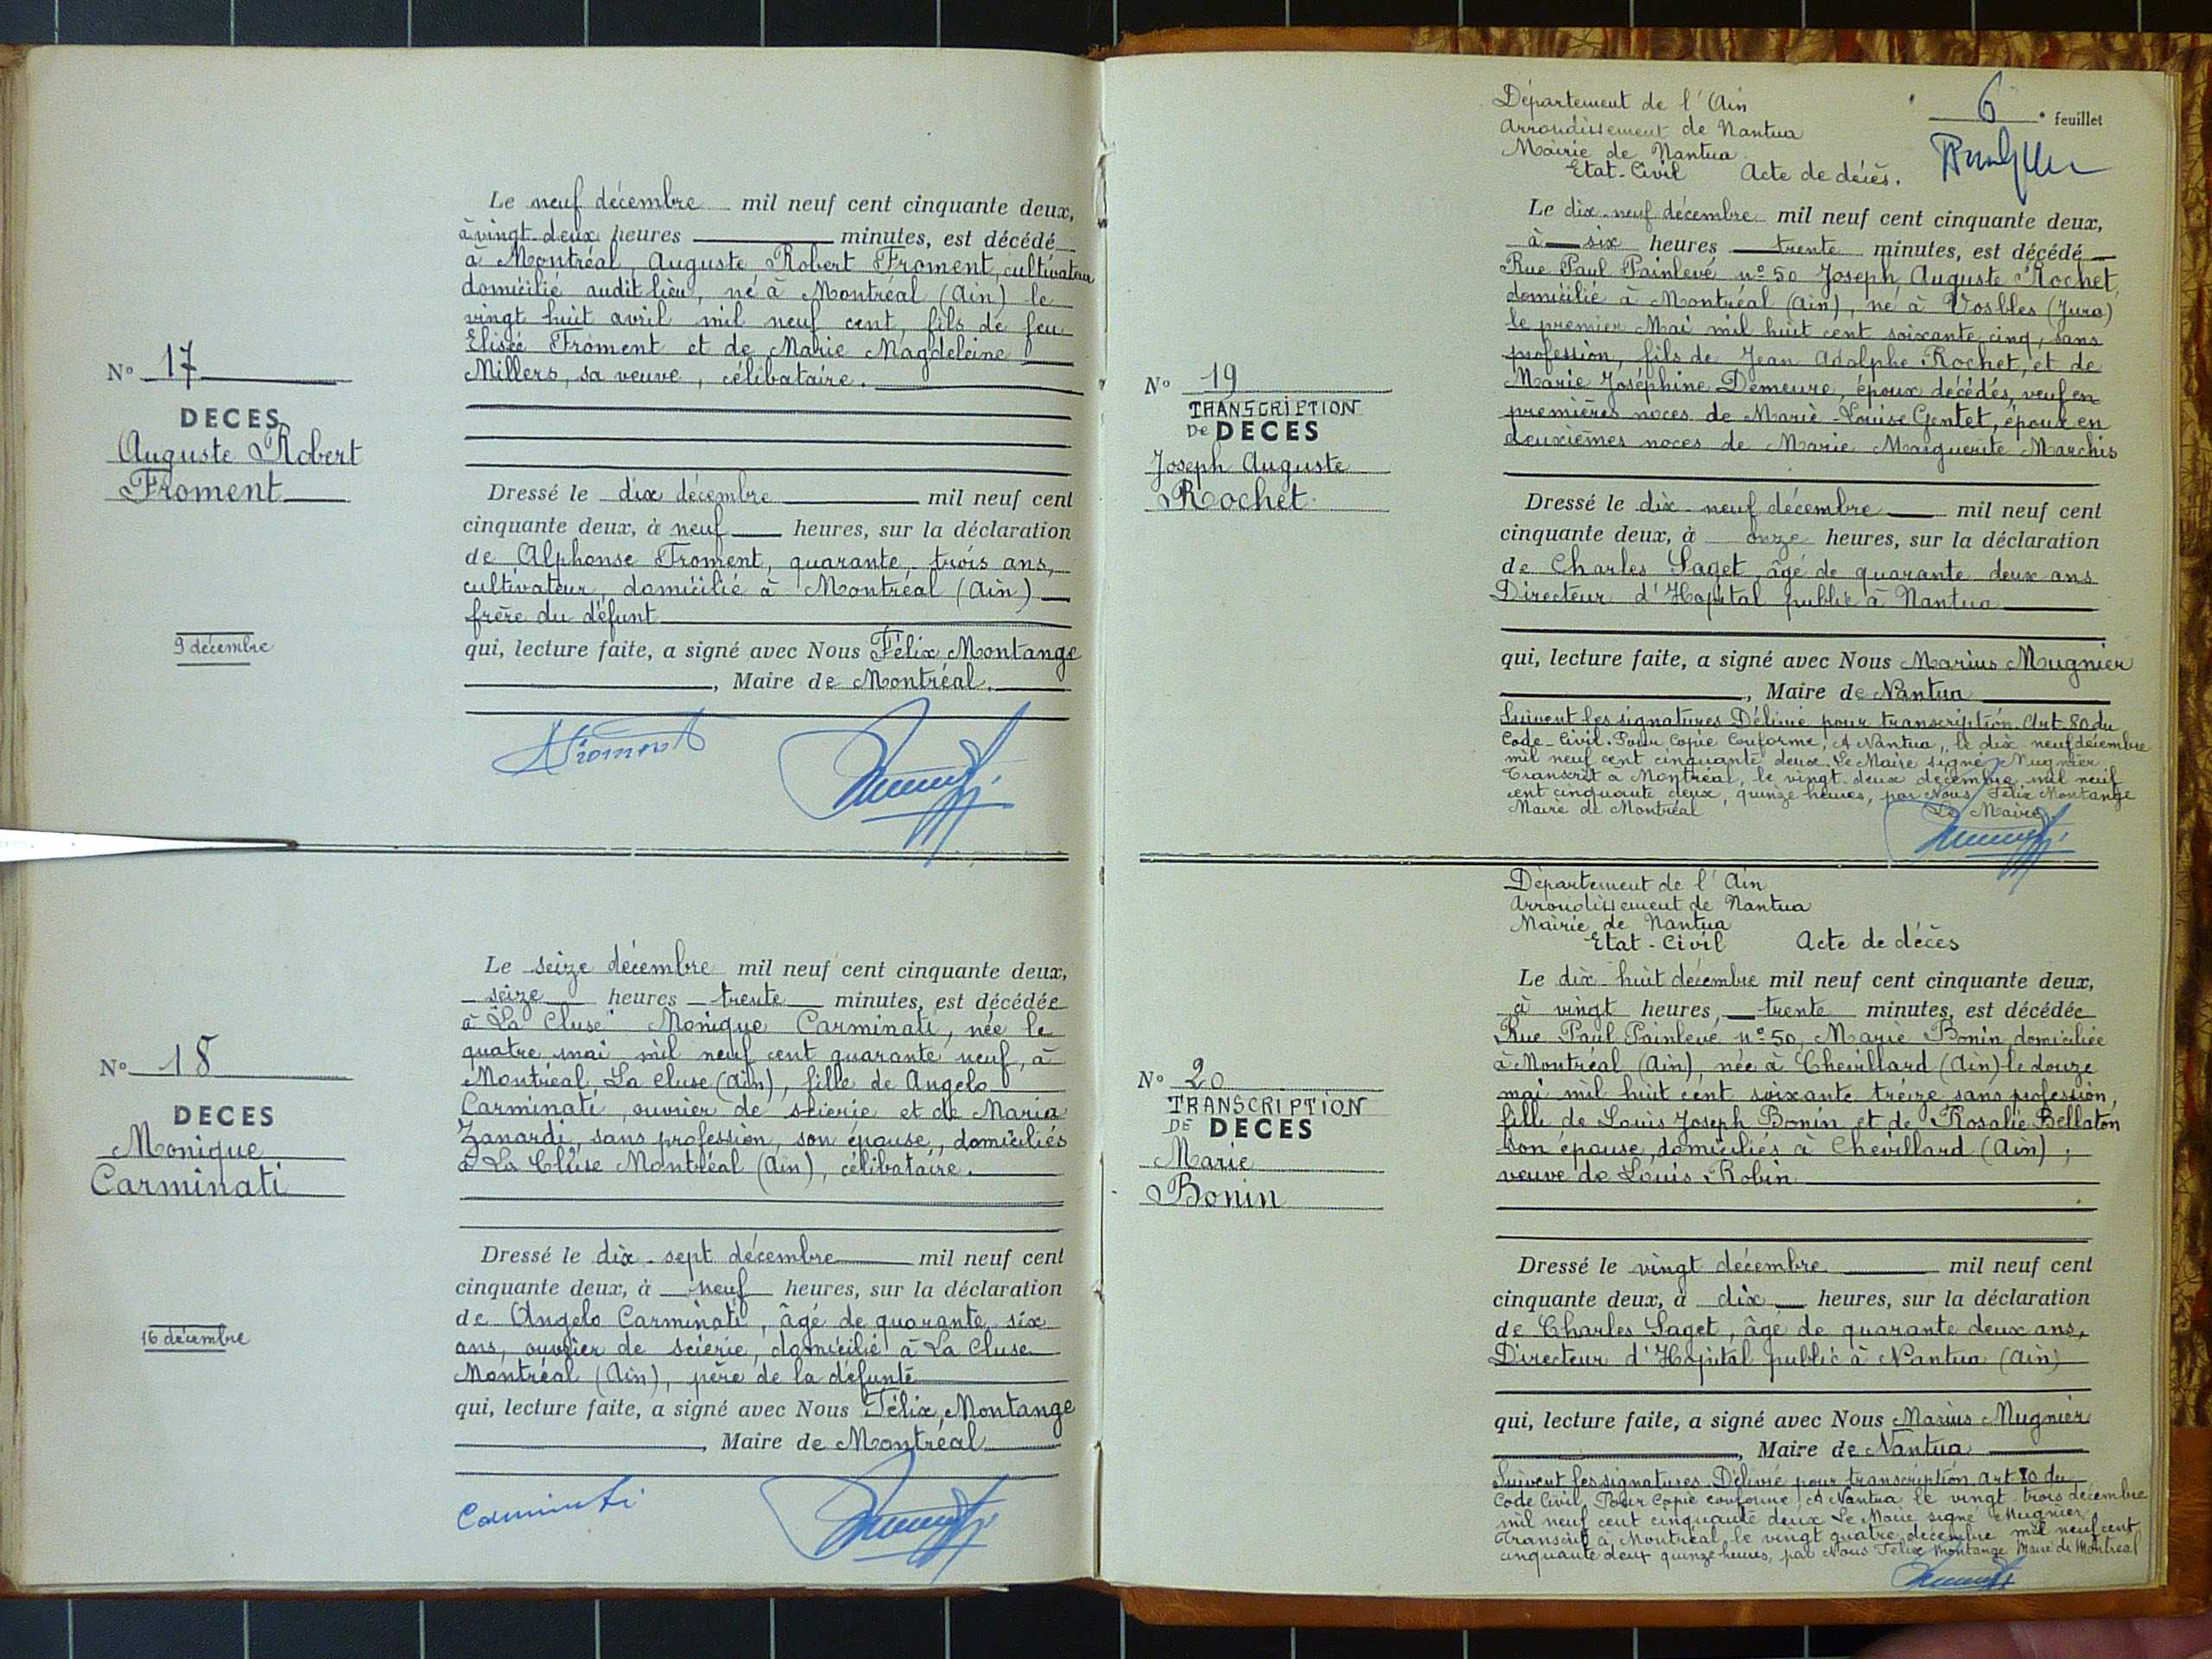 N° 17
DECES
Auguste Robert
Froment
9 décembre
Le neuf décembre mil neuf cent cinquante deux,
à vingt-deux heures minutes, est décédé
à Montréal, Auguste Robert Froment, cultivateur
domicilié audit lieu, né à Montréal (Ain) le
vingt huit avril mil neuf cent, fils de feu
Elisée Froment et de Marie Magdeleine
Millers, sa veuve, célibataire.
Dressé le dix décembre mil neuf cent
cinquante deux, à neuf heures, sur la déclaration
de Alphonse Froment, quarante-trois ans,
cultivateur, domicilié à Montréal (Ain)
frère du défunt
qui, lecture faite, a signé avec Nous Félix Montange
, Maire de Montréal.
AFroment
N° 18
DECES
Monique
Carminati
16 décembre
Le seize décembre mil neuf cent cinquante deux,
seize heures trente minutes, est décédée
à "La Cluse" Monique Carminati, née le
quatre mai mil neuf cent quarante neuf, à
Montréal La Cluse (Ain), fille de Angelo
Carminati, ouvrier de scierie et de Maria
Zanardi, sans profession, son épouse, domiciliés
à La Cluse Montréal (Ain), célibataire.
Dressé le dix-sept décembre mil neuf cent
cinquante deux, à neuf heures, sur la déclaration
de Angelo Carminati, âgé de quarante six
ans, ouvrier de scierie, domicilié à La Cluse
Montréal (Ain), père de la défunte
qui, lecture faite, a signé avec Nous Félix Montange
, Maire de Montréal
Carminati
6e feuillet
Département de l'Ain
Arrondissement de Nantua
Mairie de Nantua
Etat-Civil Acte de décès.
N° 19
TRANSCRIPTION
DE DECES
Joseph Auguste
Rochet
Le dix-neuf décembre mil neuf cent cinquante deux,
à six heures trente minutes, est décédé
Rue Paul Painlevé n° 50 Joseph Auguste Rochet,
domicilié à Montréal (Ain), né à Vosbles (Jura)
le premier Mai mil huit cent soixante cinq, sans
profession, fils de Jean Adolphe Rochet, et de
Marie Joséphine Demeure, époux décédés, veuf en
premières noces de Marie-Louise Gentet, époux en
deuxièmes noces de Marie Marguerite Marchis
Dressé le dix-neuf décembre mil neuf cent
cinquante deux, à onze heures, sur la déclaration
de Charles Saget, âgé de quarante deux ans
Directeur d'Hopital public à Nantua
qui, lecture faite, a signé avec Nous Marius Mugnier
, Maire de Nantua
Suivent les signatures Délivré pour transcription Art. 80 du
Code-Civil. Pour Copie Conforme, A Nantua, le dix neuf décembre
mil neuf cent cinquante deux. Le Maire signé Mugnier
Transcrit à Montréal, le vingt-deux décembre mil neuf
cent cinquante deux, quinze heures, par Nous Félix Montange
Maire de Montréal
Le Maire
Département de l'Ain
Arrondissement de Nantua
Mairie de Nantua
Etat-Civil Acte de décès
N° 20
TRANSCRIPTION
DE DECES
Marie
Bonin
Le dix-huit décembre mil neuf cent cinquante deux,
à vingt heures, trente minutes, est décédée
Rue Paul Painlevé n° 50, Marie Bonin, domiciliée
à Montréal (Ain), née à Chevillard (Ain) le douze
mai mil huit cent soixante treize, sans profession,
fille de Louis Joseph Bonin et de Rosalie Bellaton
son épouse, domiciliés à Chevillard (Ain);
veuve de Louis Robin
Dressé le vingt décembre mil neuf cent
cinquante deux, à dix heures, sur la déclaration
de Charles Saget, âgé de quarante deux ans,
Directeur d'Hopital public à Nantua (Ain)
qui, lecture faite, a signé avec Nous Marius Mugnier
, Maire de Nantua
Suivent les signatures Délivré pour transcription art 80 du
Code Civil Pour Copie conforme, A Nantua le vingt-trois décembre
mil neuf cent cinquante deux Le Maire signé Mugnier
Transcrit à Montréal, le vingt quatre décembre mil neuf cent
cinquante deux quinze heures, par Nous Félix Montange Maire de Montréal